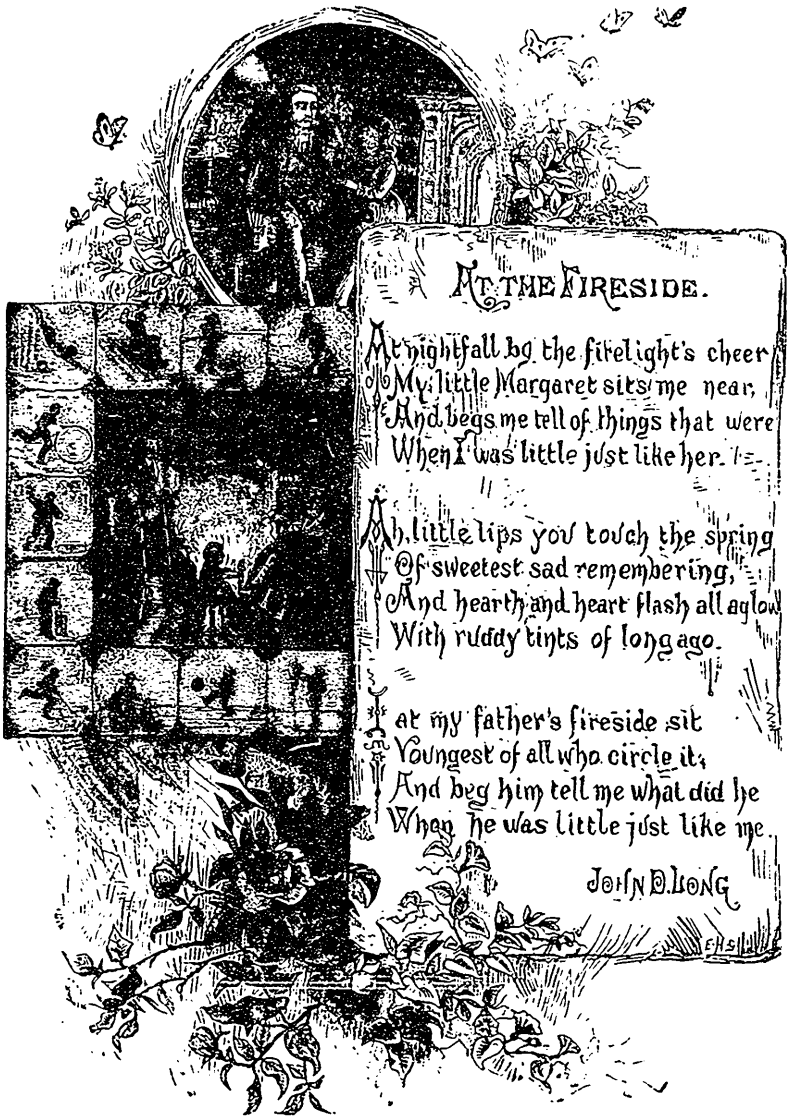 AT THE FIRESIDE.
At nightfall by the firelight's cheer
My little Margaret sits me near,
And begs me tell of things that were
When I was little just like her.
Ah, little lips you touch the spring
Of sweetest sad remembering,
And hearth and heart flash all aglow
With ruddy tints of long ago.
I at my father's fireside sit
Youngest of all who circle it;
And beg him tell me what did he
When he was little just like me.
JOHN D. LONG
E.H.S.